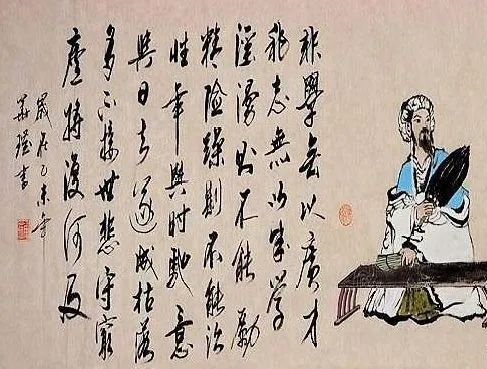 非學無以廣才
非志無以成學
淫漫則不能勵
精險躁則不能治
性年與時馳意
與日去遂成枯落
多不接世悲守窮
廬將復何及
歲在乙未年
書